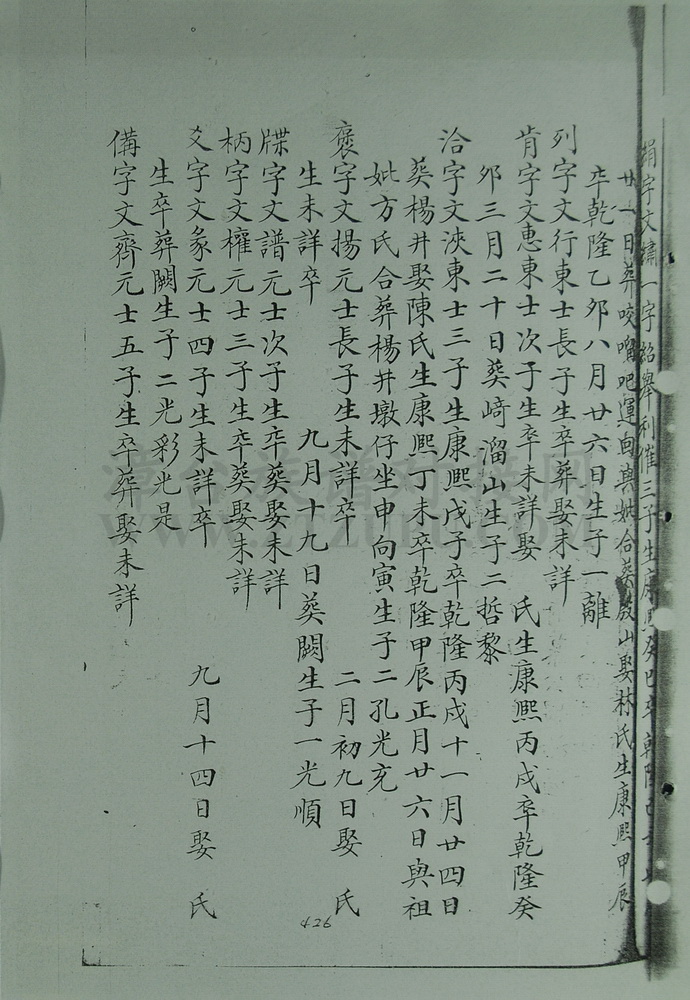 捐字文𤩊一字紹舉利倠三子生康熙癸巳卒乾隆己
廿一日葬咬𠺕吧運回與妣合葬嚴山娶林氏生康熙甲辰
卒乾隆乙卯八月廿六日生子一離
列字文行東士長子生卒葬娶未詳
肯字文惠東士次子生卒未詳娶 氏生康熙丙戌卒乾隆癸
卯三月二十日葬﨑溜山生子二哲黎
洽字文浹東士三子生康熙戊子卒乾隆丙戌十一月廿四日
葬楊井娶陳氏生康熙丁未卒乾隆甲辰正月廿六日與祖
妣方氏合葬楊井墩仔坐申向寅生子二孔光充
褒字文揚元士長子生未詳卒 二月初九日娶 氏
生未詳卒 九月十九日葬闕生子一光順
牒字文譜元士次子生卒葬娶未詳
柄字文權元士三子生卒葬娶未詳
爻字文彖元士四子生未詳卒 九月十四日娶 氏
生卒葬闕生子二光彩光是
備字文齊元士五子生卒葬娶未詳
426
www.ztzupu.com